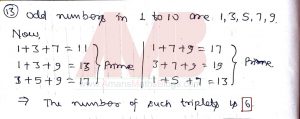 (13) odd numbers in 1 to 10 are 1,3,5,7,9
Now,
1+3+7 = 11 | 1+7+9 = 17
1+3+9 = 13 } Prime | 3+7+9 = 19 } Prime
3+5+9 = 17 | 1+5+7 = 13
⇒ The number of such triplets is 6.